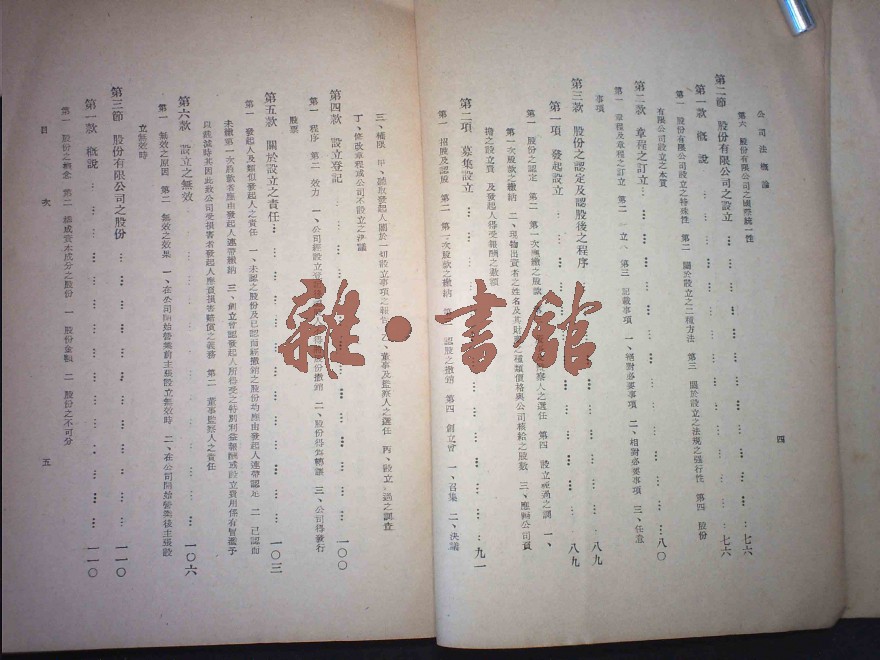 公司法概論
四
第六 股份有限公司之國際統一性
第二節 股份有限公司之設立 七六
第一款 概說 七六
第一 股份有限公司設立之特殊性 第二 關於設立之二種方法 第三 關於設立之法規之強行性 第四 股份
有限公司設立之本質
第二款 章程之訂立 八〇
第一 章程及章程之訂立 第二 立 第三 記載事項 一、絕對必要事項 二、相對必要事項 三、任意
事項
第三款 股份之認定及認股後之程序 八九
第一項 發起設立 八九
第一 股份之認定 第二 第一次股款之繳納 察人之選任 第四 設立經過之調 一、
第一次股款之繳納 二、現物出資者之姓名及其財產之種類價格與公司核給之股數 三、應歸公司負
擔之設立費 及發起人得受報酬之數額
第二項 募集設立 九一
第一 招股及認股 第二 第一次股款之繳納 第 認股之撤銷 第四 創立會 一、召集 二、決議
三、權限 甲、聽取發起人關於一切設立事項之報告 乙、董事及監察人之選任 丙、設立 過之調查
丁、修改章程或公司不設立之決議
第四款 設立登記 一〇〇
第一 程序 第二 效力 一、公司經設立登 人 得將股份撤銷 二、股份得為轉讓 三、公司得發行
股票
第五款 關於設立之責任 一〇三
第一 發起人及類似發起人之責任 一、未認之股份及已認而經撤銷之股份均應由發起人連帶認足 二、已認而
未繳第一次股款者應由發起人連帶繳納 三、創立會認發起人所得受之特別利益報酬或設立費用係有冒濫予
以裁減時其因此致公司受損害者發起人應負損害賠償之義務 第二 董事監察人之責任
第六款 設立之無效 一〇六
第一 無效之原因 第二 無效之效果 一、在公司開始營業前主張設立無效時 二、在公司開始營業後主張設
立無效時
第三節 股份有限公司之股份 一一〇
第一款 概說 一一〇
第一 股份之概念 第二 構成資本成分之股份 一 股份金額 二 股份之不可分
目次
五
雜·書館